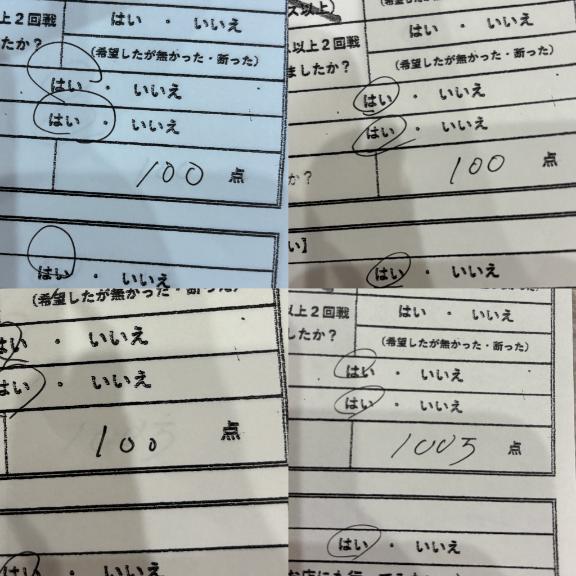 上2回戦
たか？
はい ・ いいえ
（希望したが無かった・断った）
はい ・ いいえ
はい ・ いいえ
100 点
はい ・ いいえ
以上）
以上2回戦
ましたか？
はい ・ いいえ
（希望したが無かった・断った）
はい ・ いいえ
はい ・ いいえ
か？
100 点
い】
はい ・ いいえ
（希望したが無かった・断った）
はい ・ いいえ
はい ・ いいえ
100 点
はい ・ いいえ
以上2回戦
したか？
はい ・ いいえ
（希望したが無かった・断った）
はい ・ いいえ
はい ・ いいえ
1005 点
はい ・ いいえ